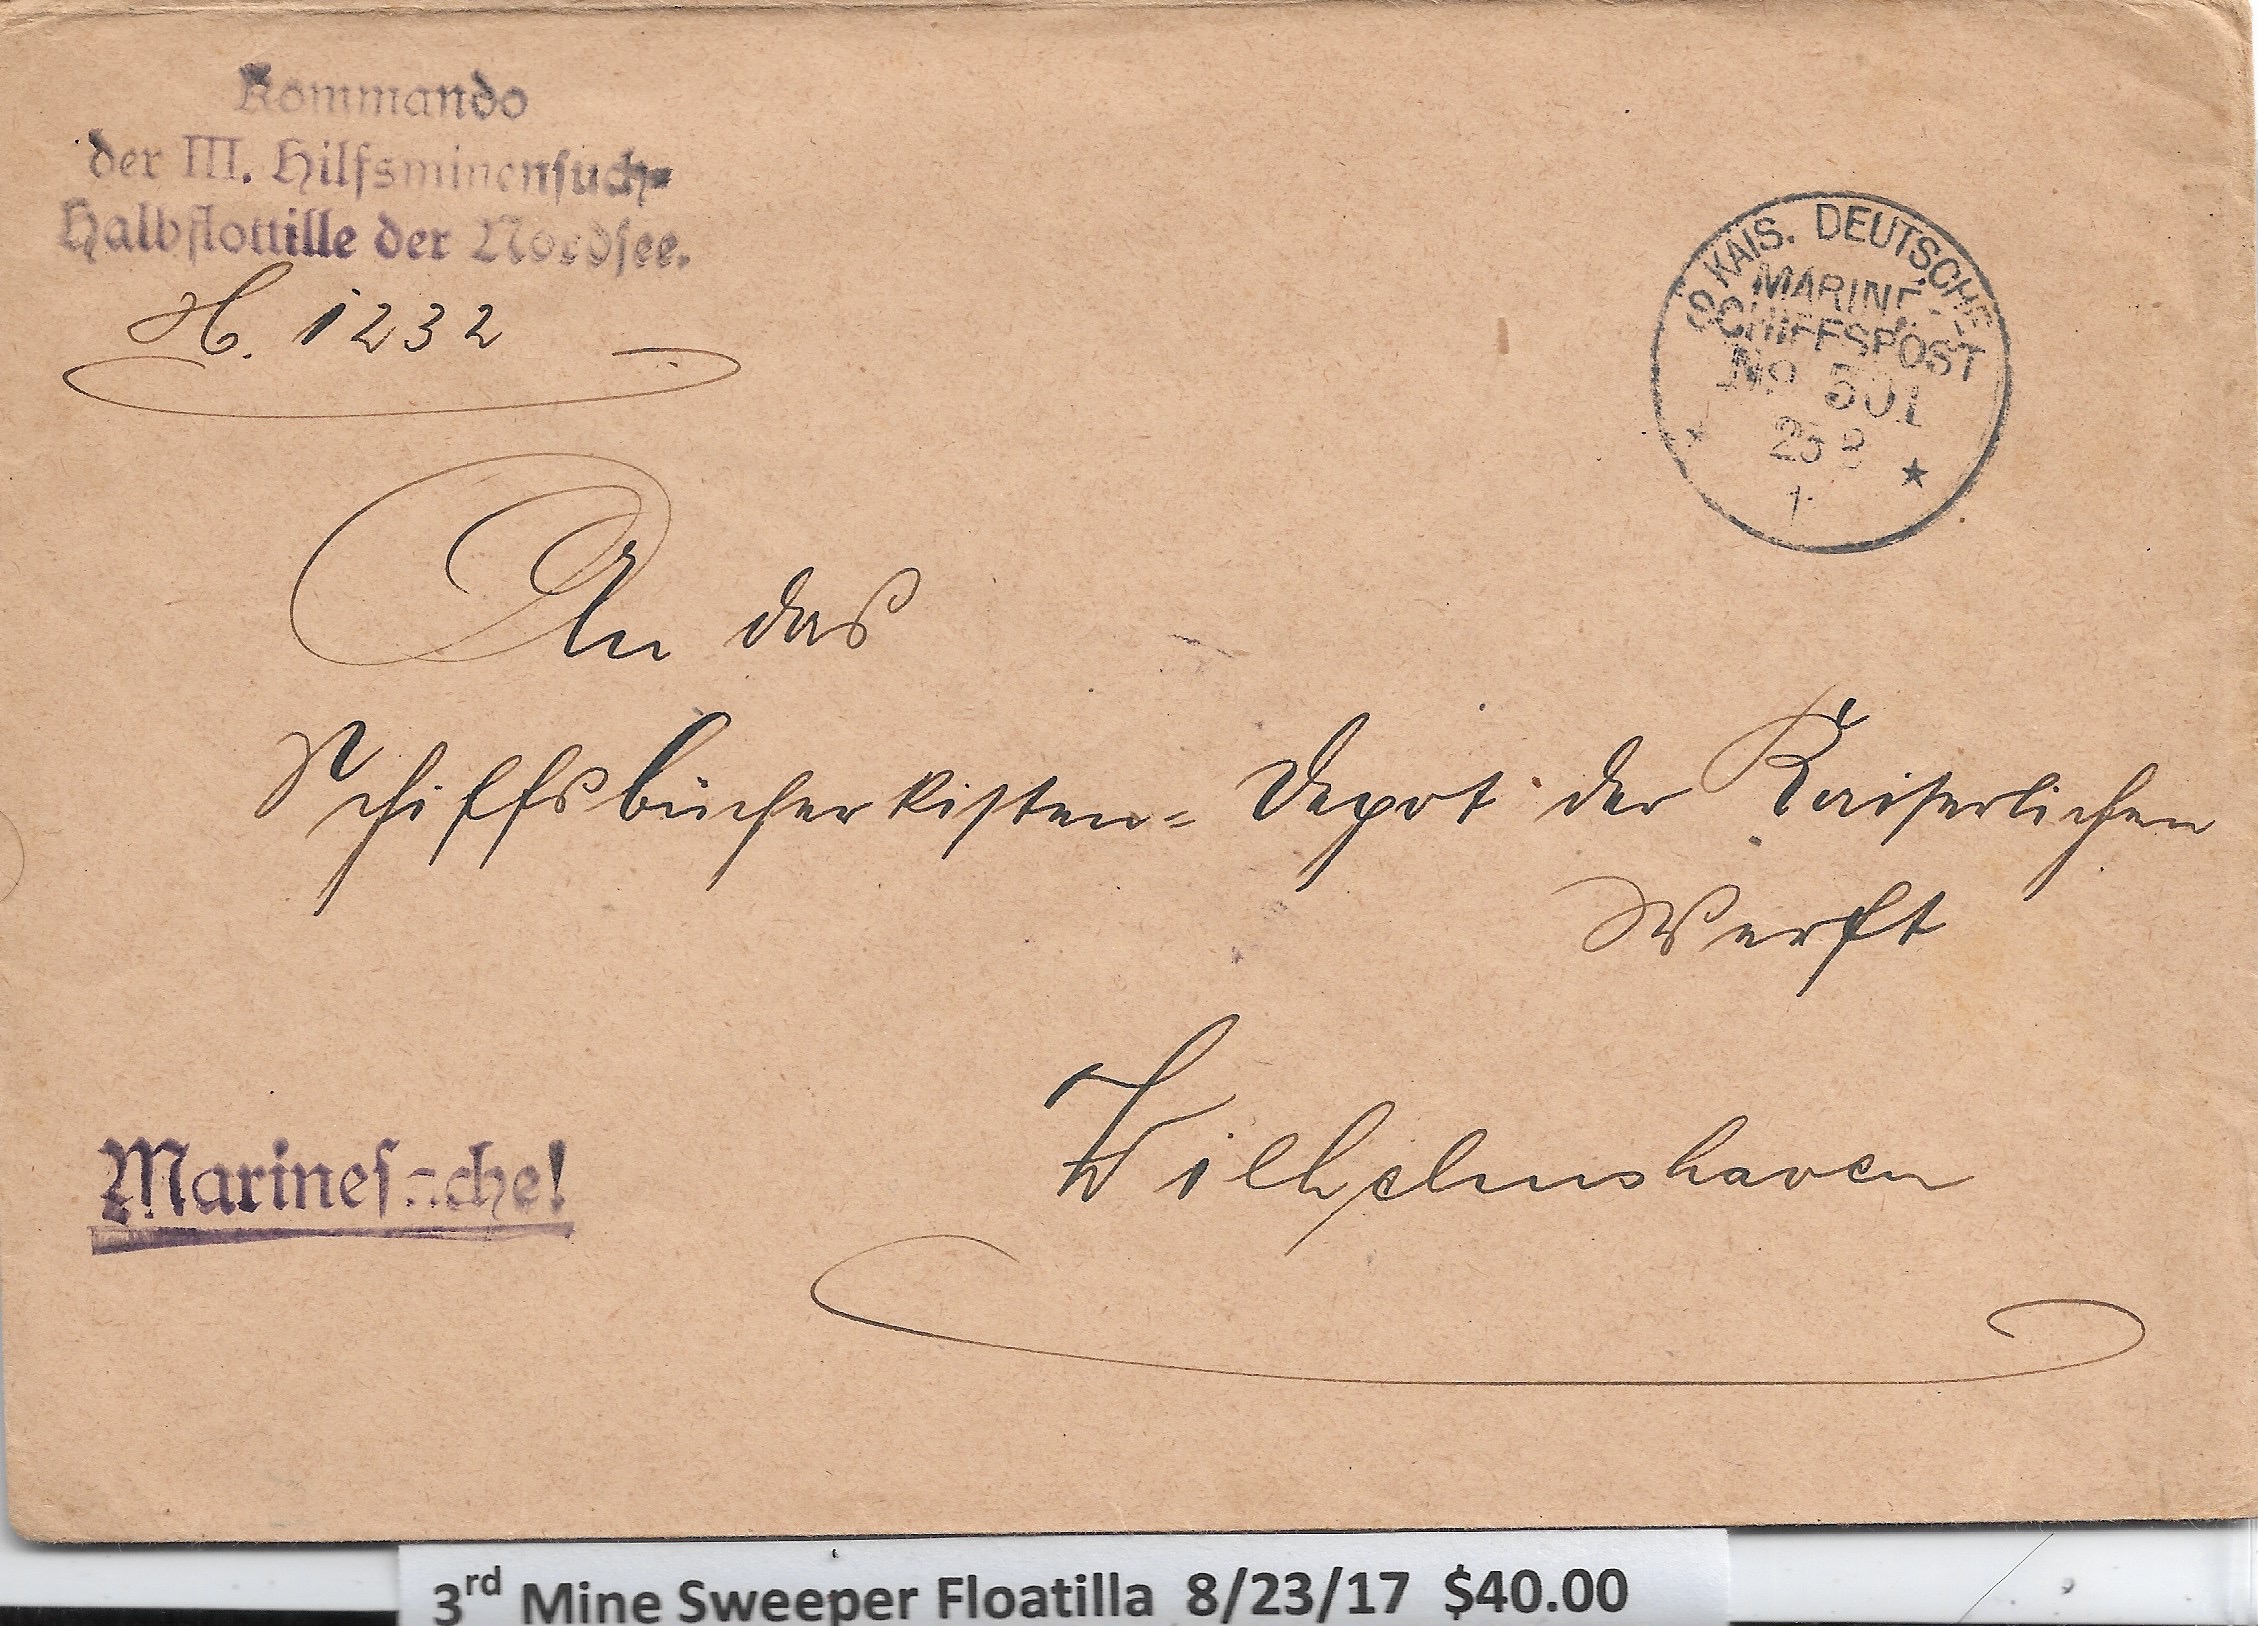 Kommando
der III. Hilfsminensuch-
Halbflottille der Nordsee.
H. 1232
KAIS. DEUTSCHE
MARINE-
SCHIFFSPOST
No 501
23 8
An das
Schiffsbücherkisten-Depot der Kaiserlichen
Werft
Wilhelmshaven
Marinesache!
3rd Mine Sweeper Floatilla 8/23/17 $40.00